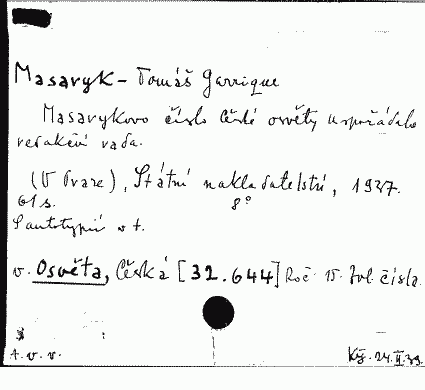 Masaryk - Tomáš Garrigue
Masarykovo číslo České osvěty uspořádala
redakční rada.
(V Praze), Státní nakladatelství, 1937.
61 s. 8°
S autotypií v t.
v. Osvěta, Česká [32.644] Roč. 15. Zvl. číslo.
A. v. v.
24. II. 39.